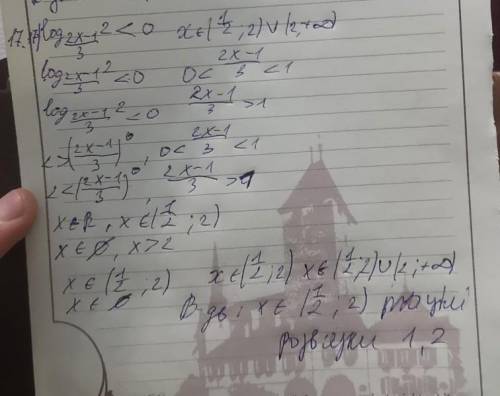 log_{(2x-1)/3} 2 < 0   x∈(1/2; 2) ∪ (2; +∞)
log_{(2x-1)/3} 2 < 0   0 < (2x-1)/3 < 1
log_{(2x-1)/3} 2 < 0   (2x-1)/3 > 1
2 > ((2x-1)/3)^0, 0 < (2x-1)/3 < 1
2 < ((2x-1)/3)^0, (2x-1)/3 > 1
x∈R, x∈(1/2; 2)
x∈∅, x>2
x∈(1/2; 2)   x∈(1/2; 2) x∈(1/2; 2) ∪ (2; +∞)
x∈∅   В-дь: x∈(1/2; 2)
розвязки 1, 2